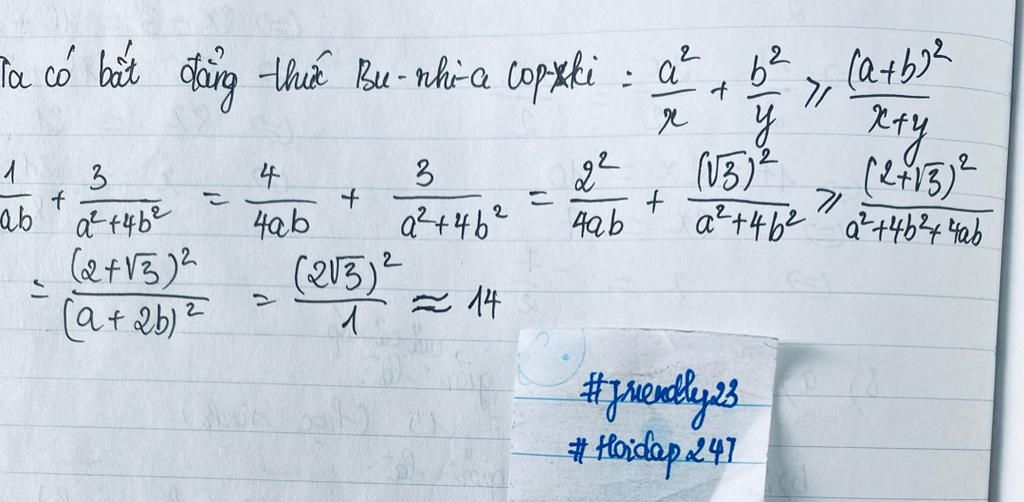 Ta có bất đẳng thức Bu-nhi-a Cop-xki : a²/x + b²/y ⩾ (a+b)²/(x+y)
1/ab + 3/(a²+4b²) = 4/4ab + 3/(a²+4b²) = 2²/4ab + (√3)²/(a²+4b²) ⩾ (2+√3)²/(a²+4b²+4ab)
= (2+√3)²/(a+2b)² = (2√3)²/1 ≈ 14
#friendly23
#Hoidap247